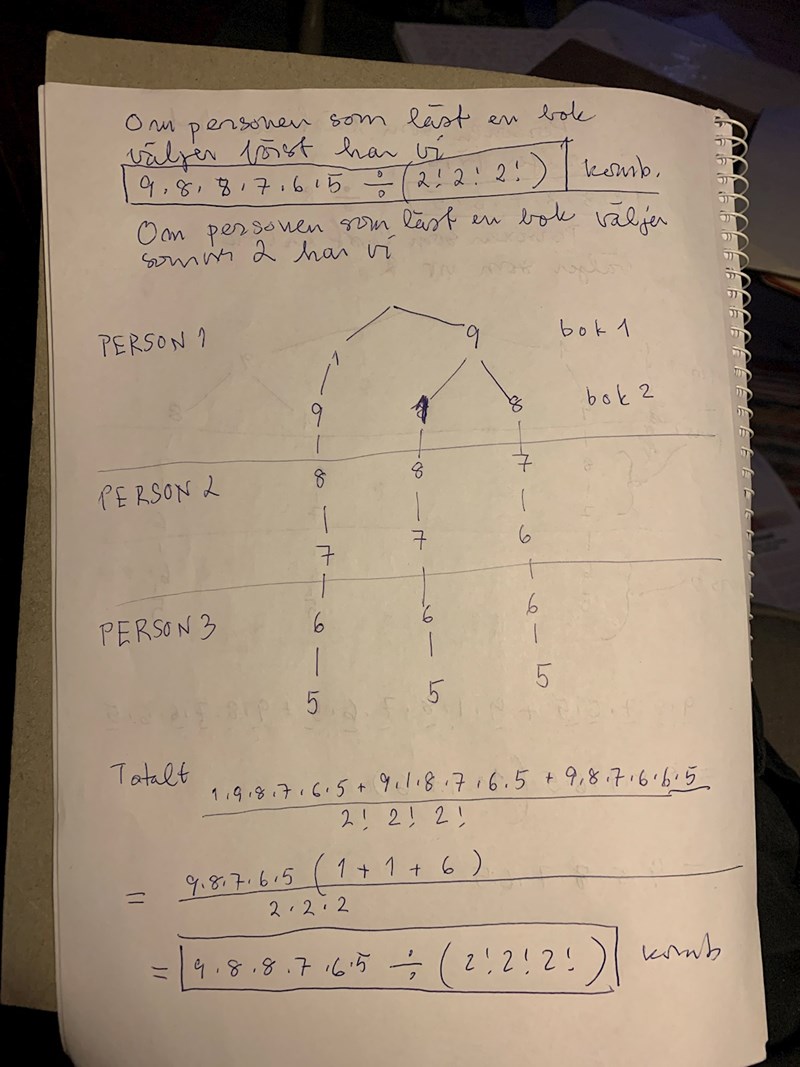 Om personen som läst en bok
väljer först har vi
9.8.8.7.6.5 ÷ (2! 2! 2!) komb.
Om personen som läst en bok väljer
som nr 2 har vi
PERSON 1 1 9 bok 1
9 8 bok 2
PERSON 2 8 8 7
7 7 6
PERSON 3 6 6 6
5 5 5
Totalt 1.9.8.7.6.5 + 9.1.8.7.6.5 + 9.8.7.6.6.5
2! 2! 2!
= 9.8.7.6.5 (1 + 1 + 6)
2.2.2
= 9.8.8.7.6.5 ÷ (2! 2! 2!) komb